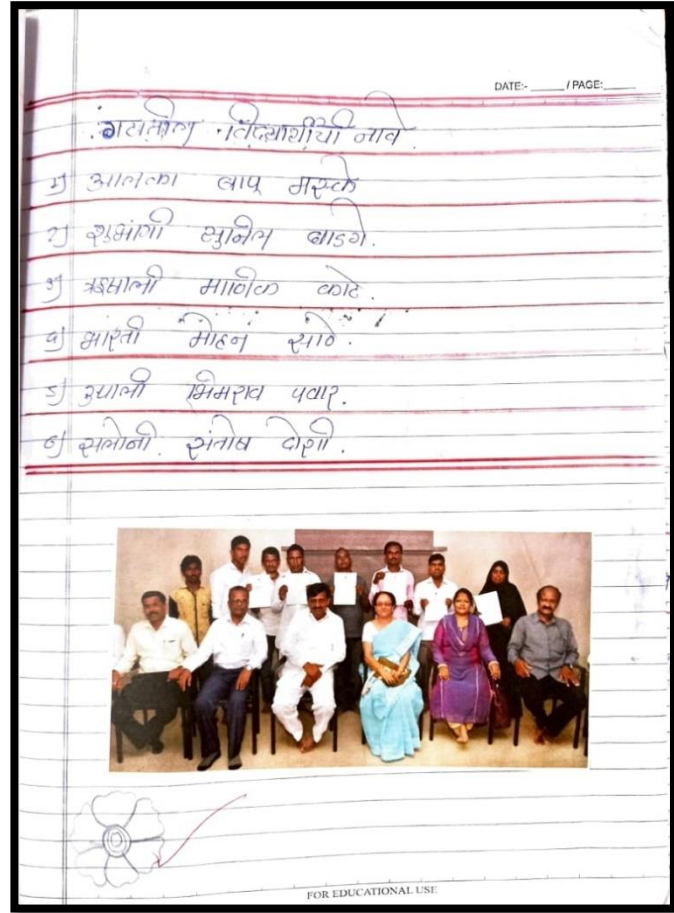 DATE:- ______ / PAGE:______
गटातील विद्यार्थीची नावे
१) आलका बापू मस्के
२) शुभांगी सुनिल बाडगे.
३) ऋषाली माणिक काटे.
४) भारती मोहन साठे.
५) रुपाली भिमराव पवार.
६) सलोनी संतोष दोशी.
FOR EDUCATIONAL USE